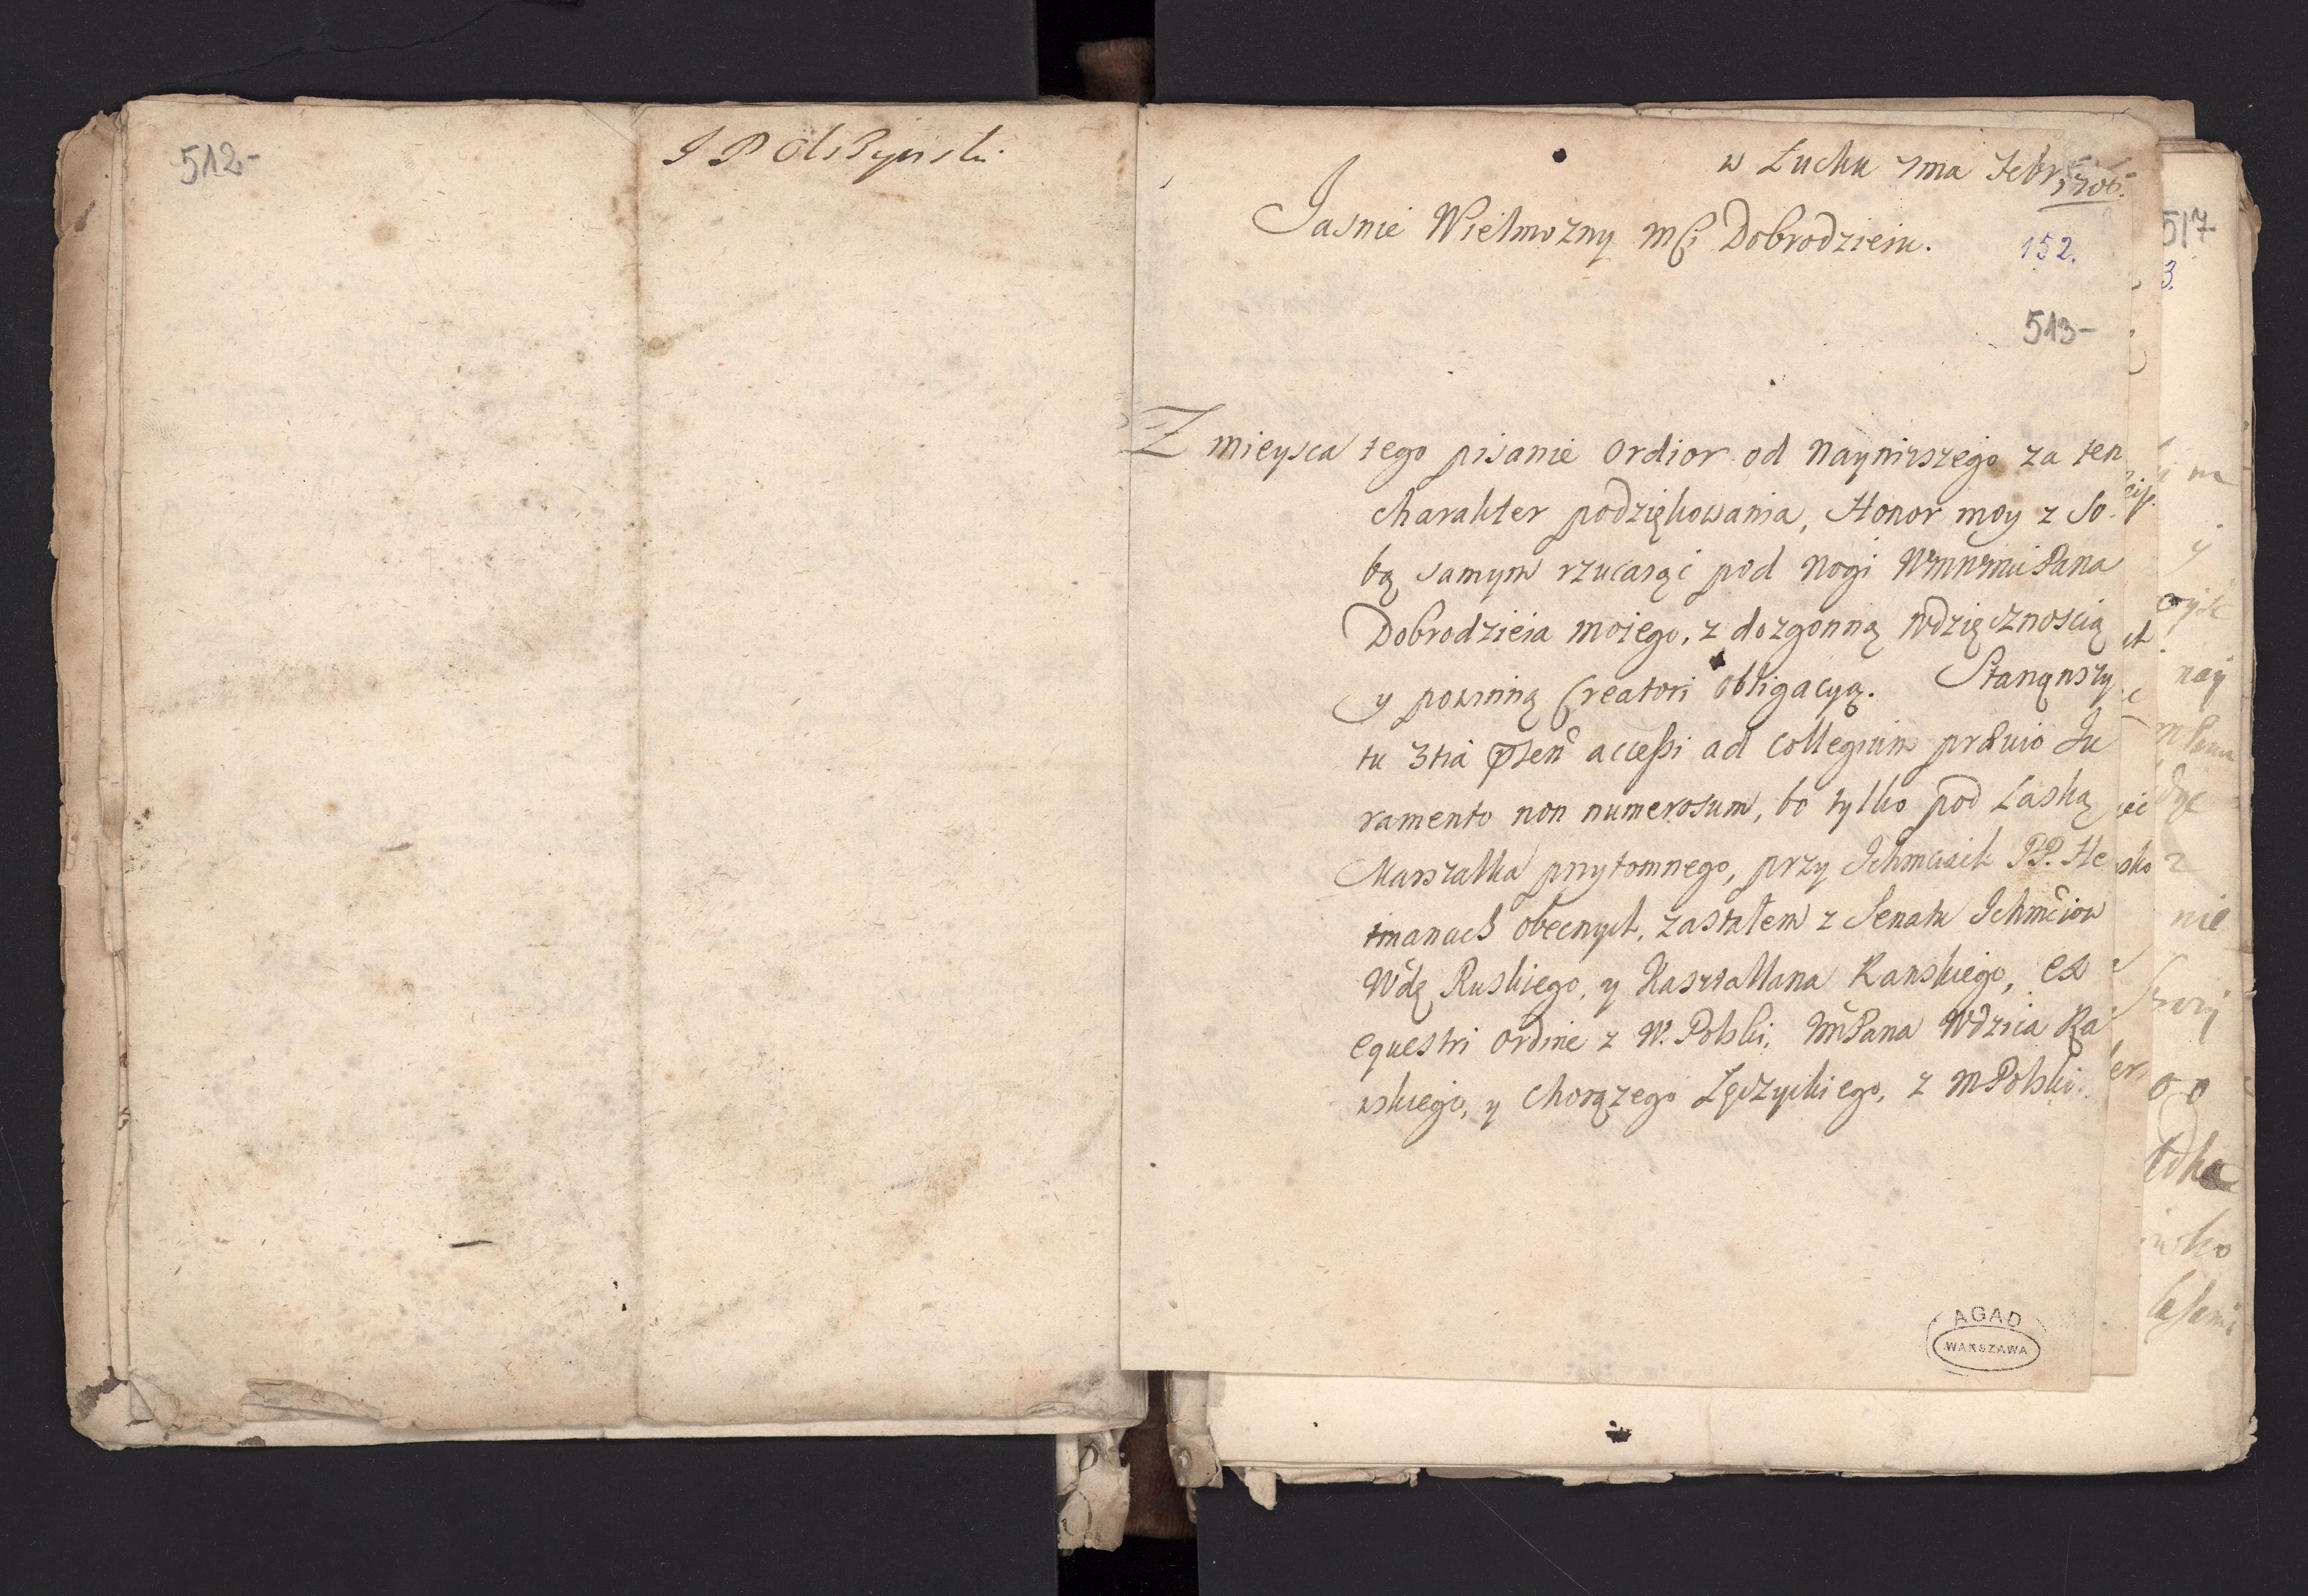 512-
J P Olszynski
w Łucku 7ma Febr 1706.
Jasnie Wielmozny MCi Dobrodzieiu.
152.
513-
Z mieysca tego pisanie ordior od naynizszego za ten
charakter podziękowania, Honor moy z So-
bą samym rzucaiąc pod nogi WMWMM Pana
Dobrodzieia moiego, z dozgonną wdzięcznoscią
y powinną Creatori obligacyą. Stanąwszy
tu 3tia accessi ad Collegium prævio Ju
ramento non numerosum, bo tylko pod Laską
Marszałka przytomnego, przy Ichmciach PP. He
tmanach obecnych, zastałem z Senatu Ichmciow
Wdę Ruskiego, y Kasztallana Rawskiego, ex
equestri ordine z W. Polski, Pana Wdzica Ra
wskiego, y Chorązego Łęczyckiego, z MPolski
AGAD
WARSZAWA
517
3.